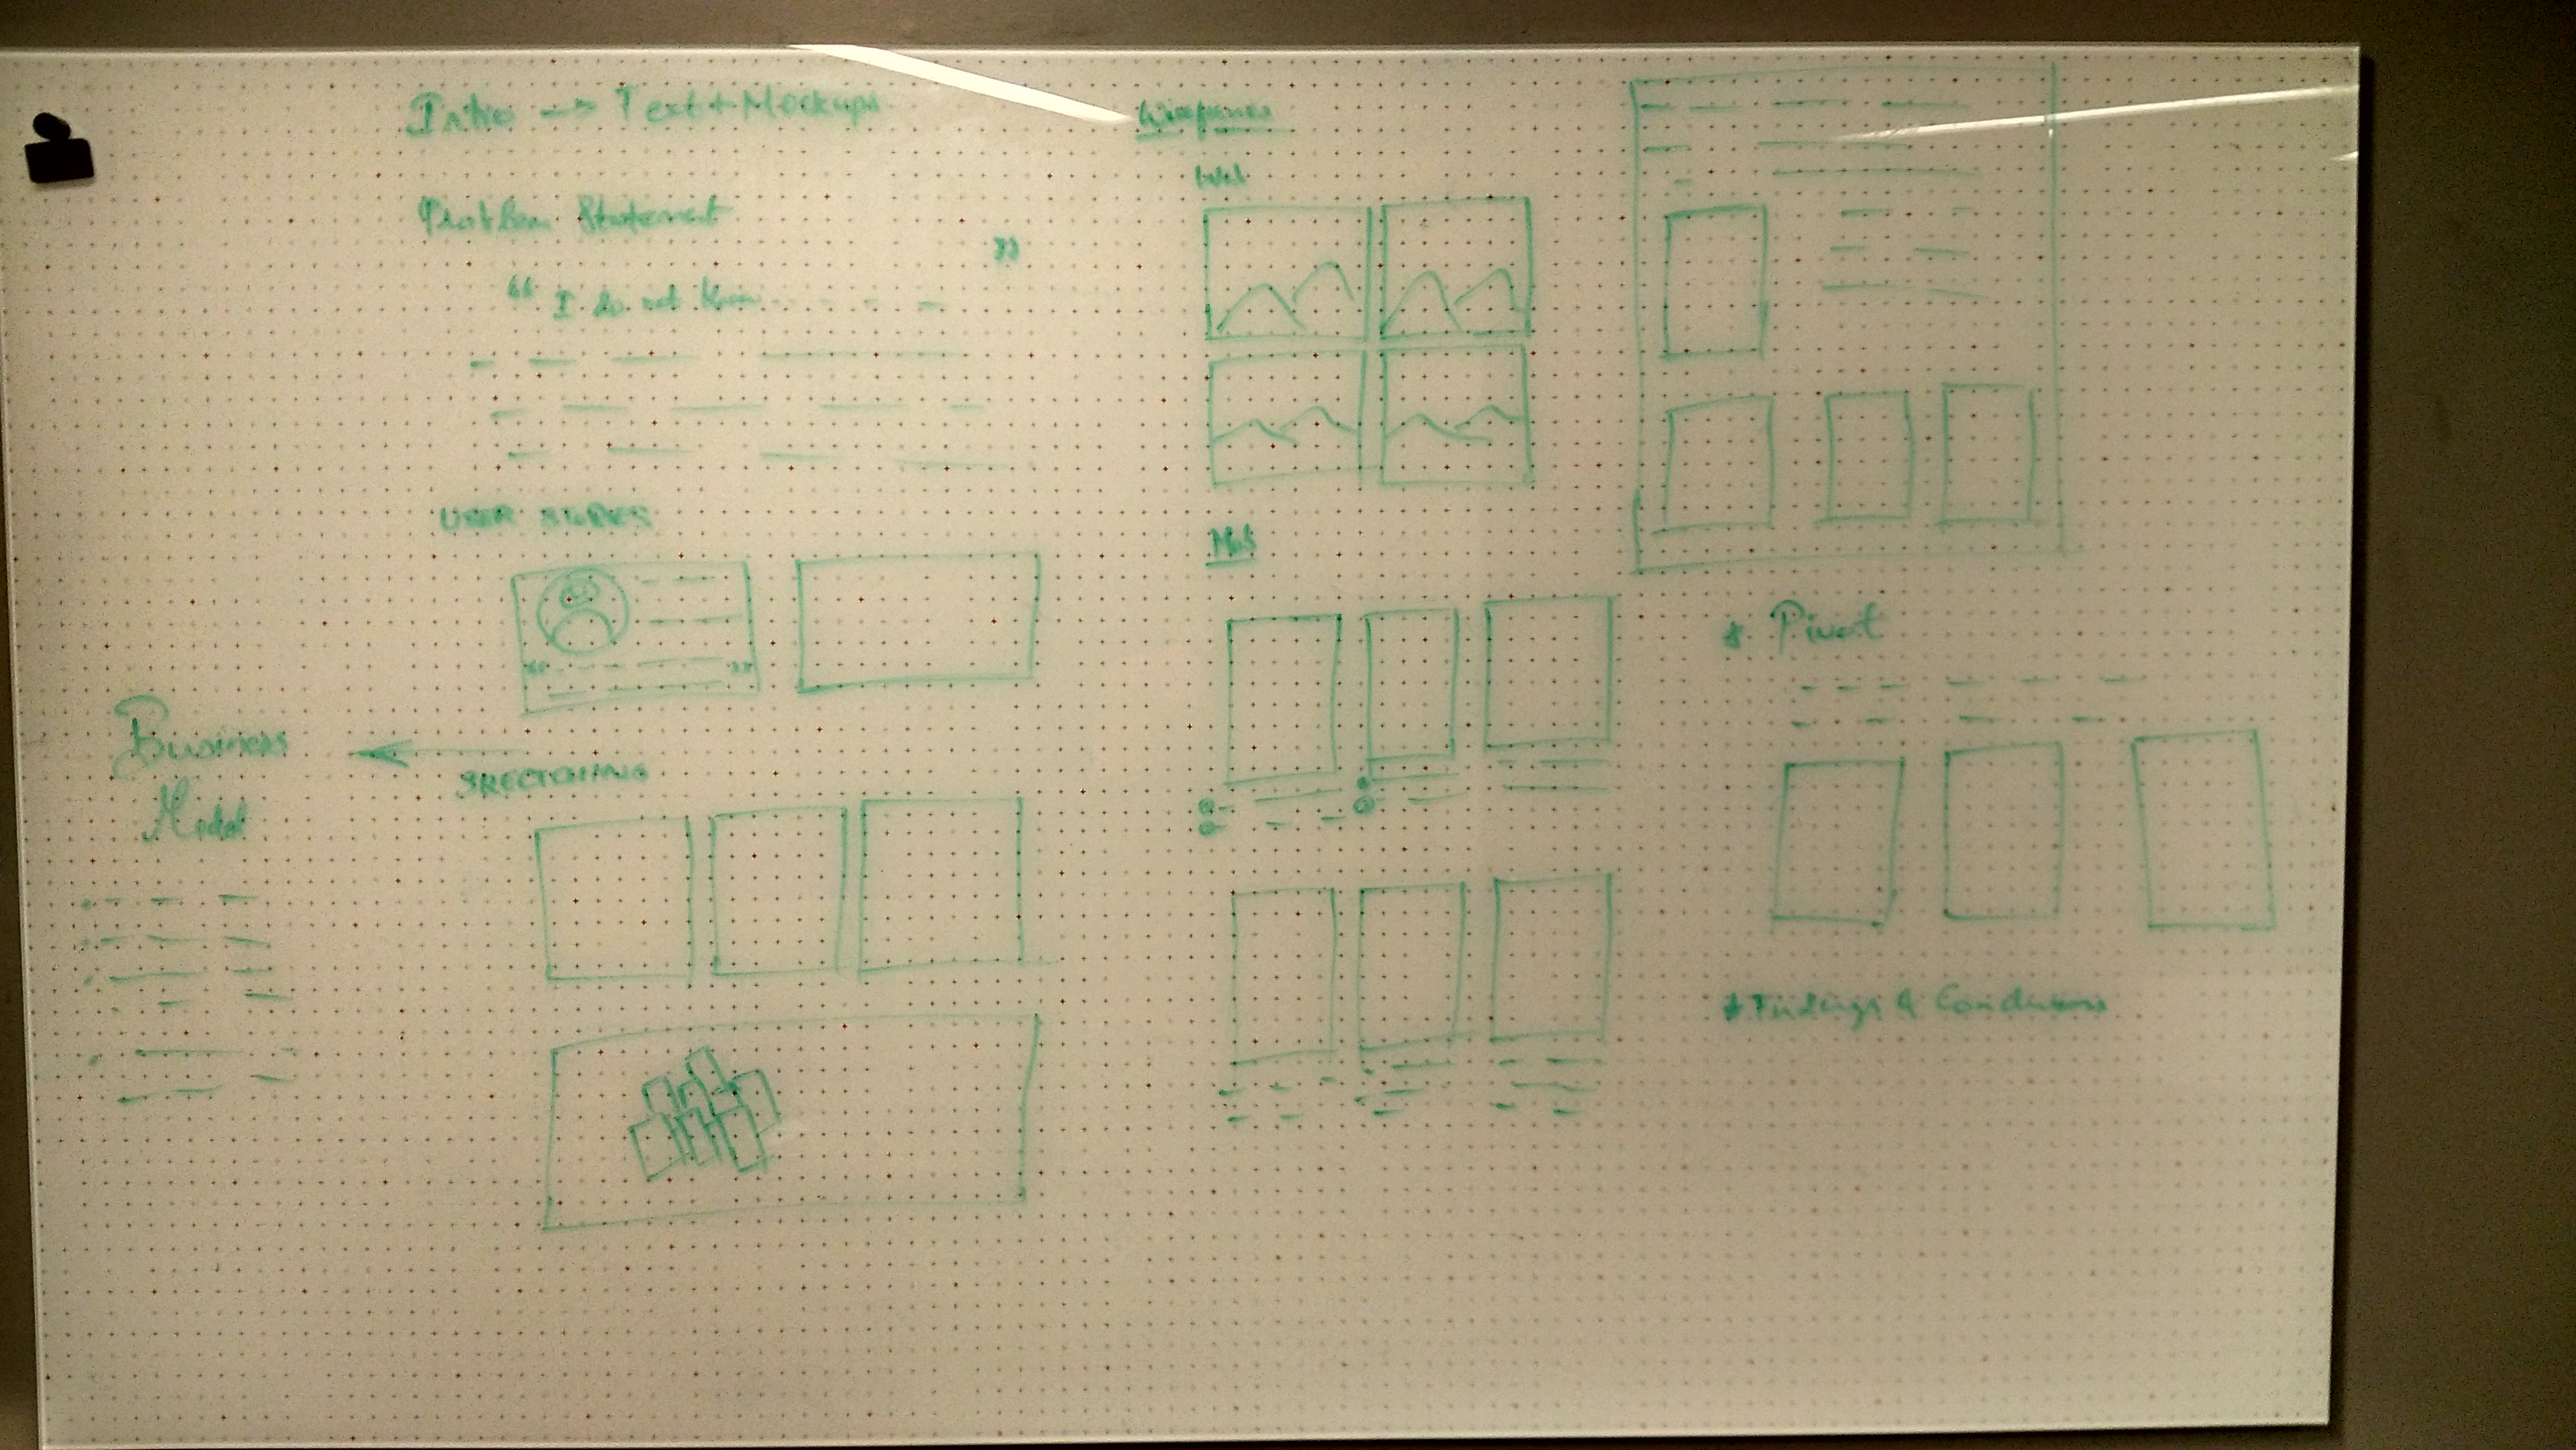 Intro → Text + Mockups
Problem Statement
“ I do not know ”
USER STORIES
“ ”
SKETCHING
Business
Model
Wireframes
Web
Mob
* Pivot
* Findings & Conclusions